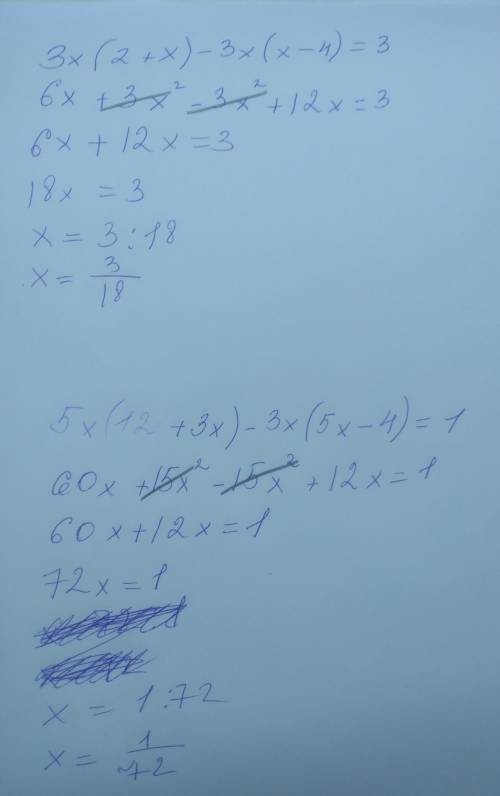 3x(2+x)-3x(x-4)=3
6x+3x²-3x²+12x=3
6x+12x=3
18x=3
x=3:18
x=3/18
5x(12+3x)-3x(5x-4)=1
60x+15x²-15x²+12x=1
60x+12x=1
72x=1
x=1:72
x=1/72